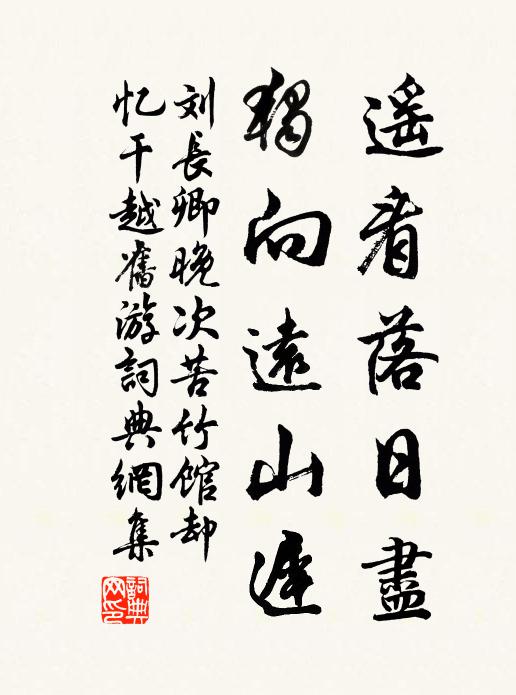 遥看落日盡
獨向遠山遲
刘長卿晚次苦竹館却
忆干越舊游詞典網集
詞典
网印